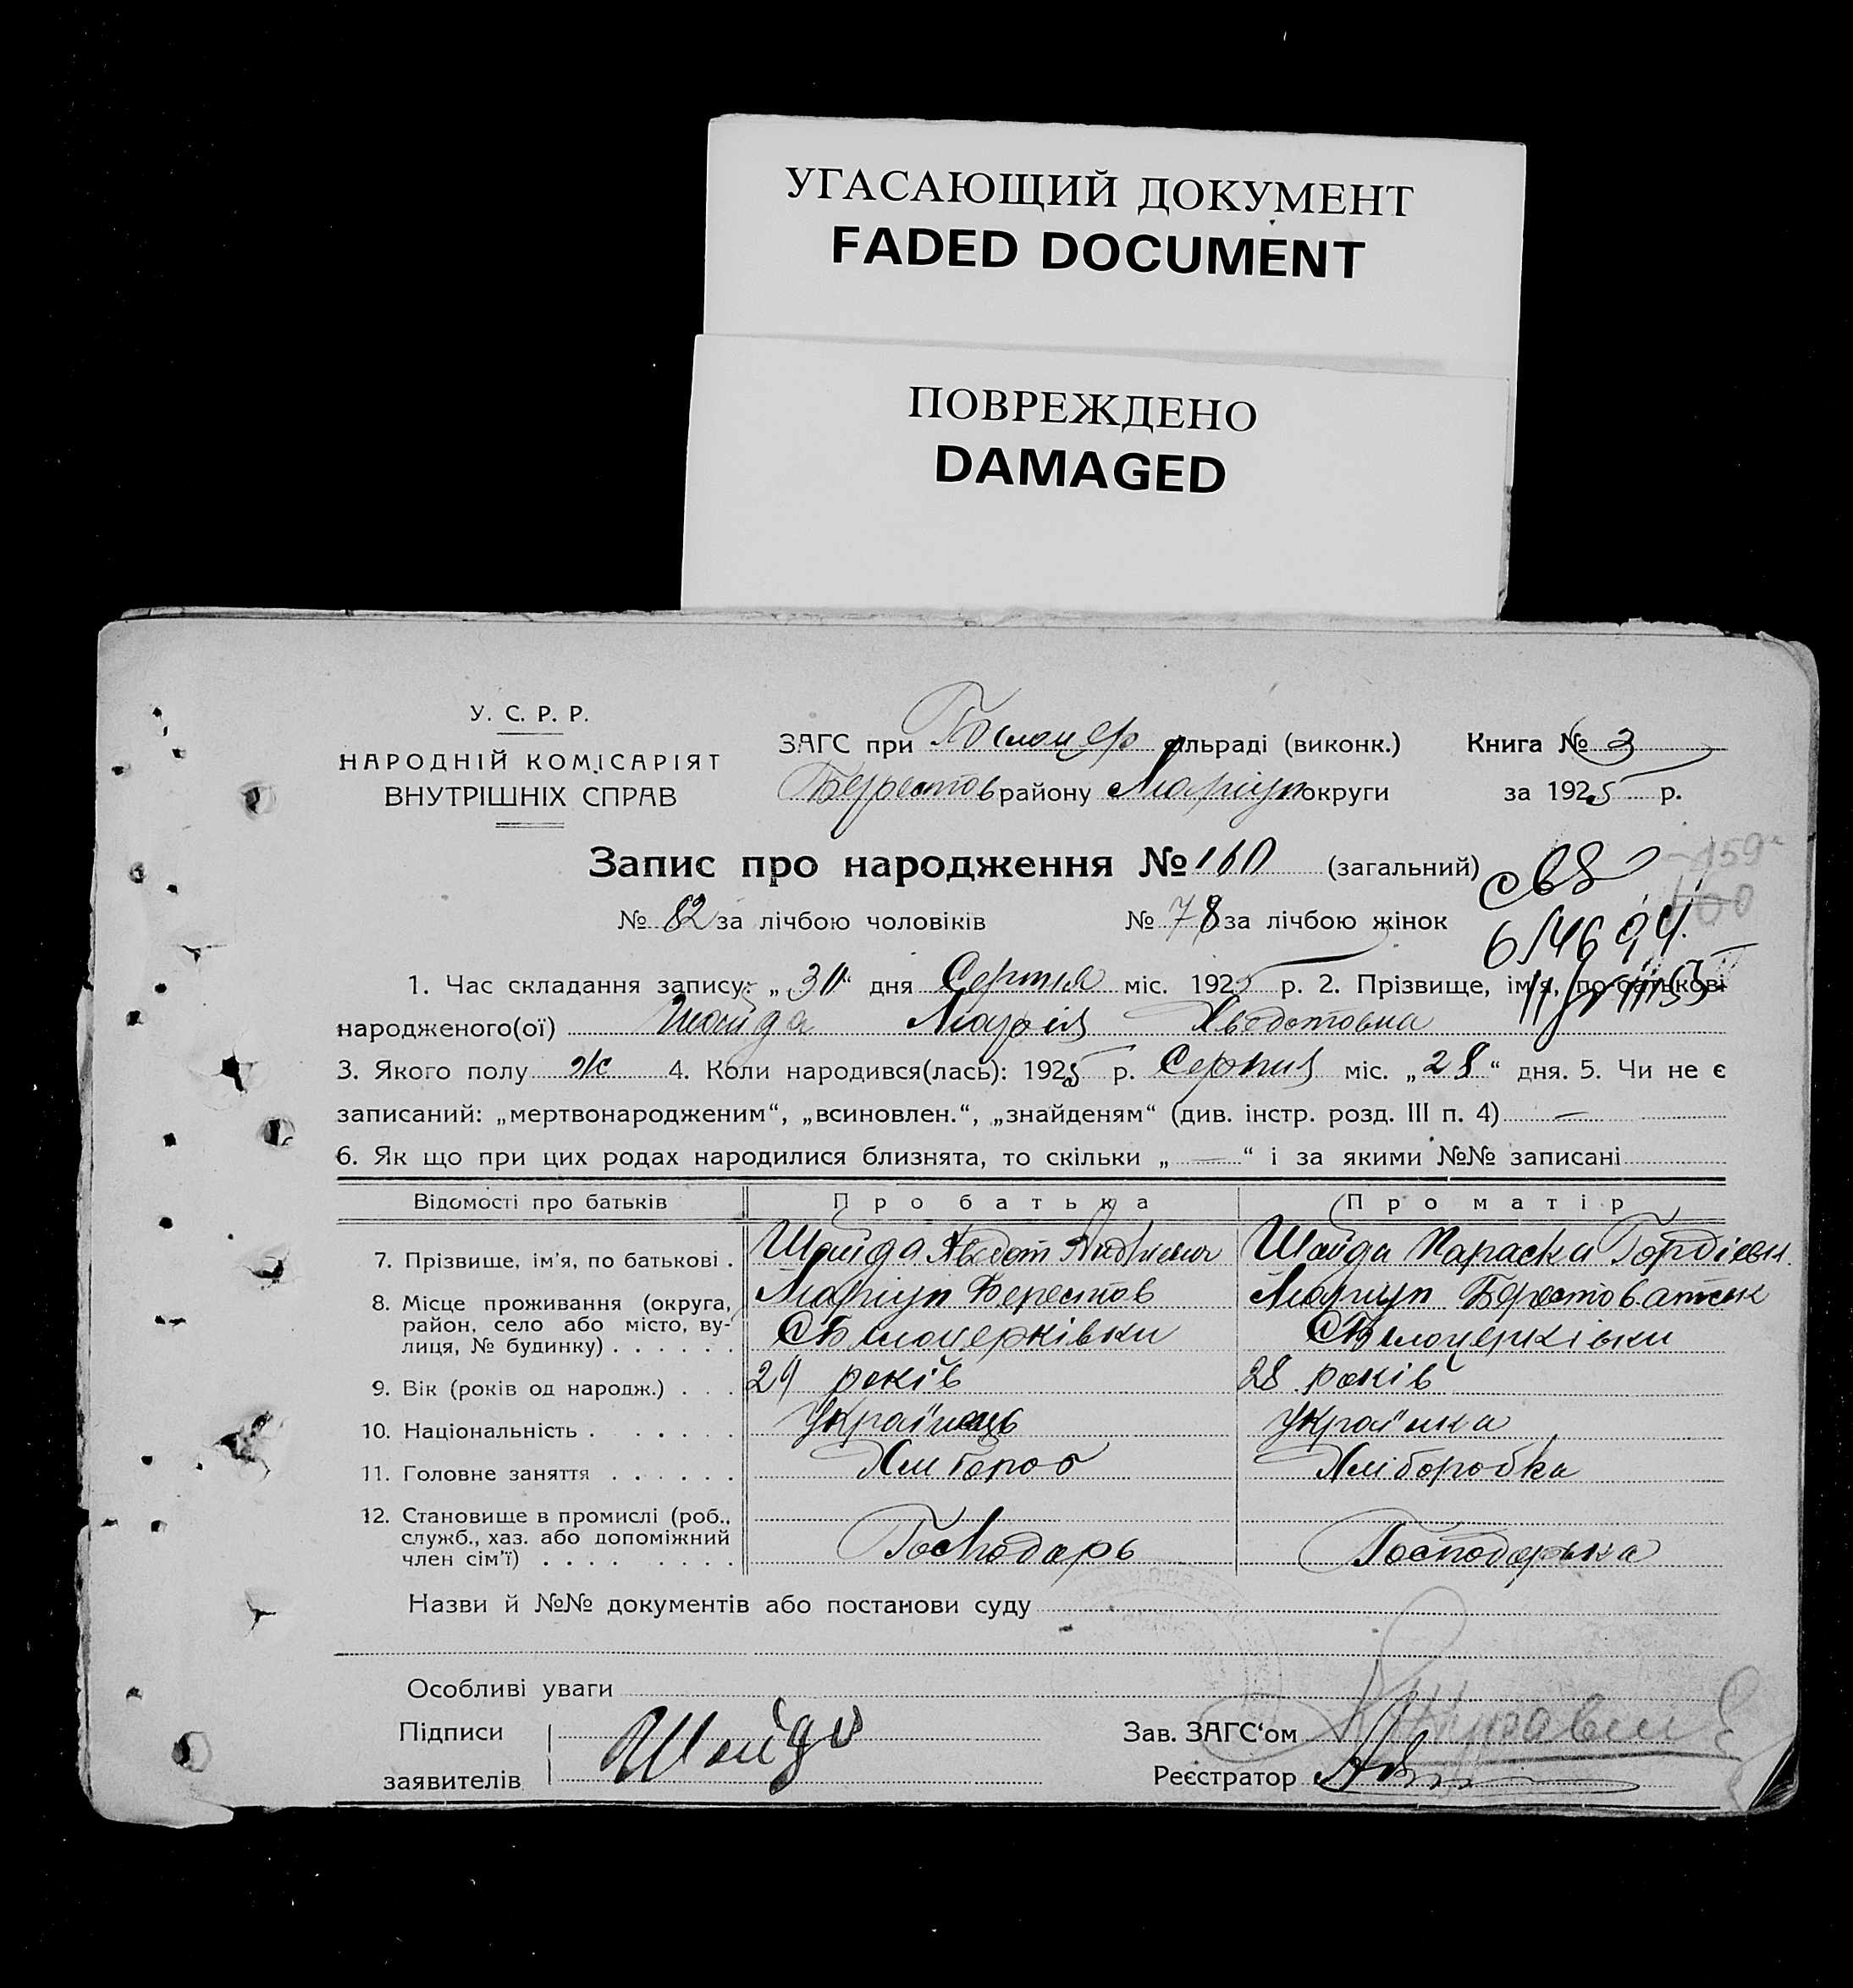 УГАСАЮЩИЙ ДОКУМЕНТ
FADED DOCUMENT
ПОВРЕЖДЕНО
DAMAGED
У. С. Р. Р.
НАРОДНІЙ КОМІСАРІЯТ
ВНУТРІШНІХ СПРАВ
ЗАГС при Білоцер сільраді (виконк.)
Берестов району Маріуп округи
Книга № 3
за 1925 р.
Запис про народження № 160 (загальний)
№ 82 за лічбою чоловіків № 78 за лічбою жінок
159
100
1. Час складання запису: „30“ дня Серпня міс. 1925 р. 2. Прізвище, ім'я, по батькові
народженого(ої) Шайда Марія Хведотовна
3. Якого полу ж 4. Коли народився(лась): 1925 р. Серпня міс. „28“ дня. 5. Чи не є
записаний: „мертвонародженим“, „всиновлен.“, „знайденям“ (див. інстр. розд. III п. 4) —
6. Як що при цих родах народилися близнята, то скільки „—“ і за якими №№ записані
Відомості про батьків Про батька Про матір
7. Прізвище, ім'я, по батькові . Шайда Хведот Андрієвич Шайда Параска Гордієвн.
8. Місце проживання (округа, район, село або місто, вулиця, № будинку) . . . . . .
Маріуп Берестов Маріуп Берестоватськ
С Білоцерківки С Білоцерківки
9. Вік (років од народж.) . . . 29 років 28 років
10. Національність . . . . . . Українець Українка
11. Головне заняття . . . . . . Хлібороб Хліборобка
12. Становище в промислі (роб.,
служб., хаз. або допоміжний
член сім'ї) . . . . . . . . . Господарь Господарька
Назви й №№ документів або постанови суду
Особливі уваги
Підписи
заявителів
Шайда
Зав. ЗАГС'ом
Реєстратор